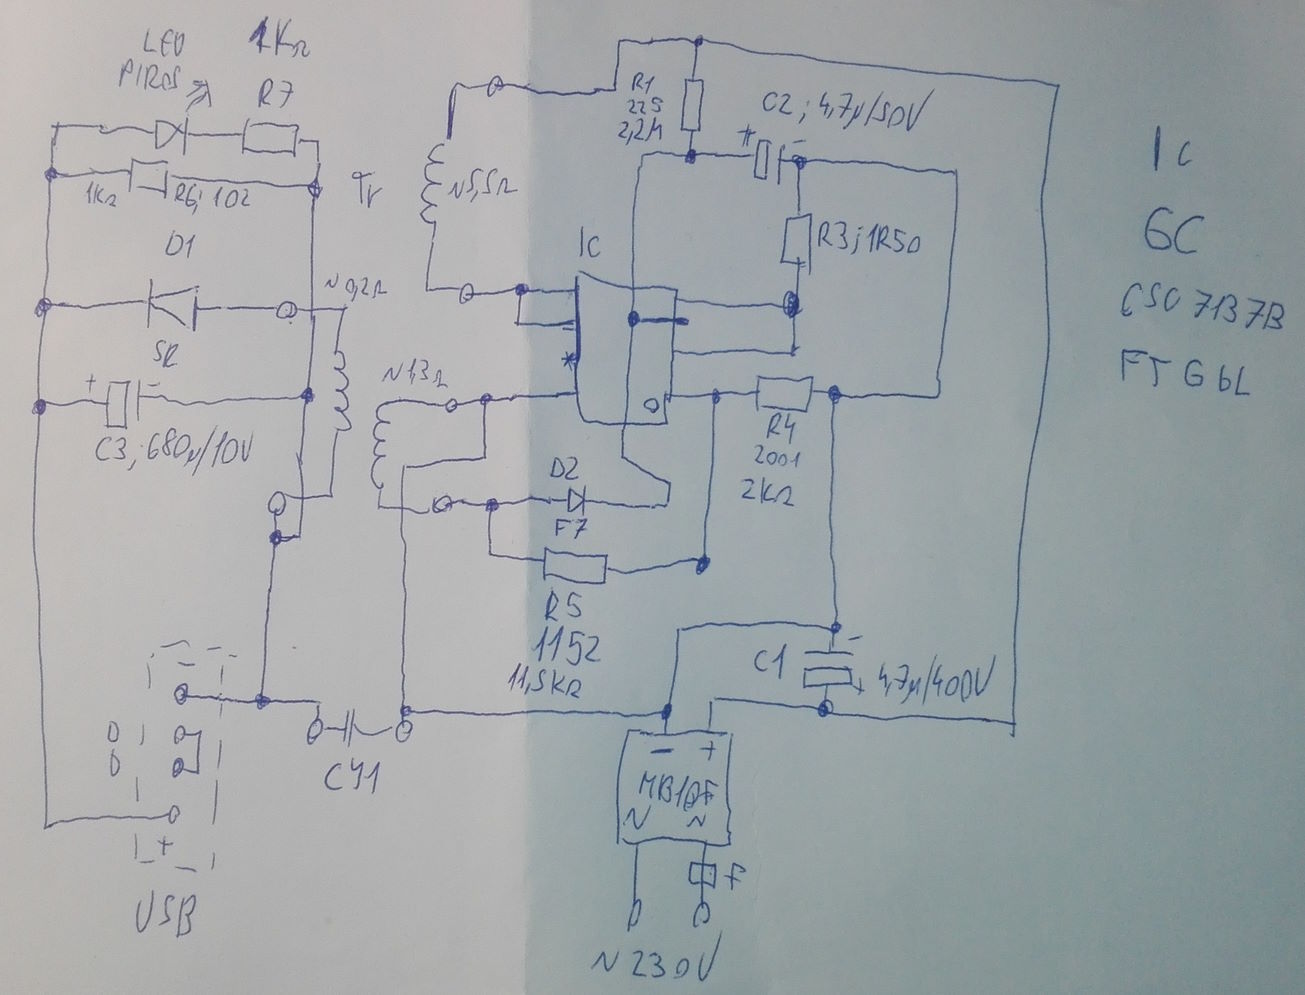 LED
PIROS
1KΩ
R7
1KΩ
R6; 102
D1
SR
C3; 680µ/10V
+
-
Tr
~0,2Ω
~5,5Ω
~1,3Ω
R1
225
2,2M
C2; 4,7µ/50V
+
-
R3; 1R50
IC
*
R4
2001
2KΩ
D2
F7
R5
1152
11,5KΩ
C1
4,7µ/400V
-
+
CY1
- +
MB10F
~ ~
F
~230V
-
D
D
+
USB
IC
GC
CSC7137B
FTG6L